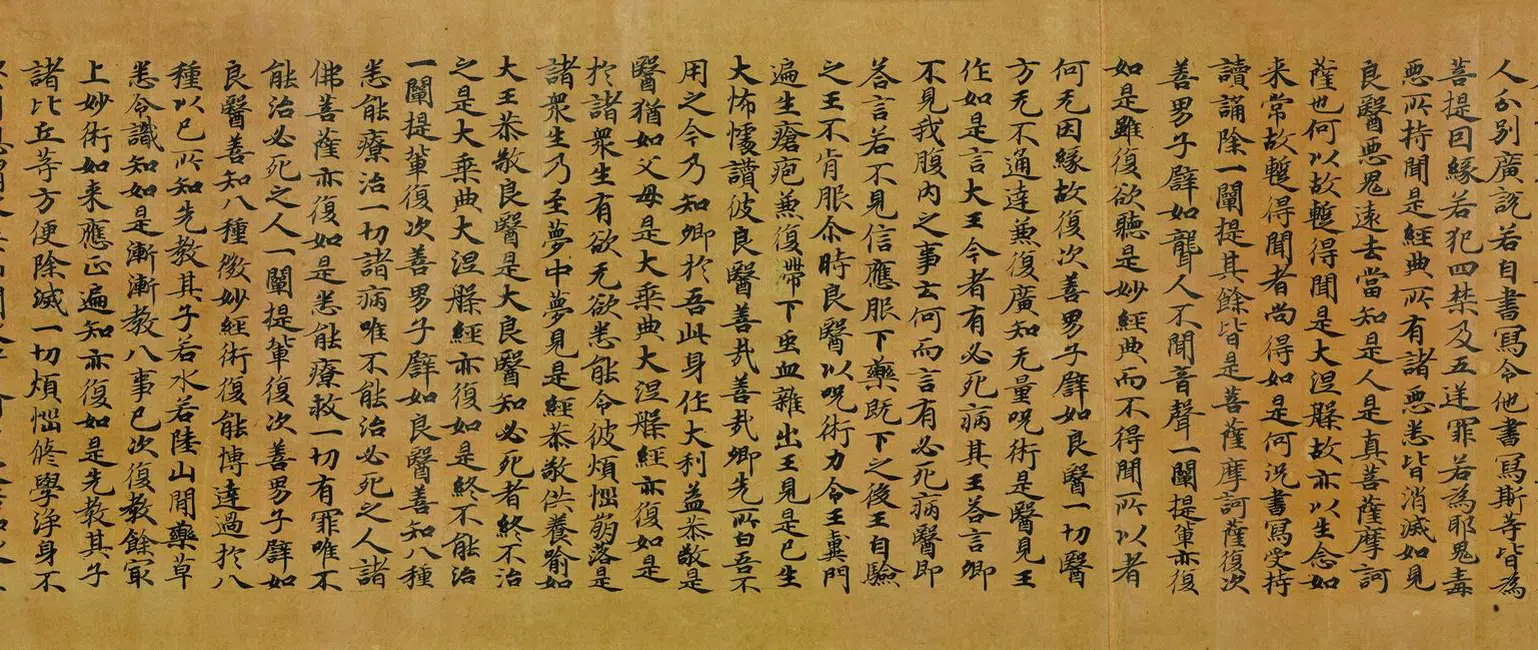 人分別廣説若自書寫令他書寫斯等皆為
菩提因緣若犯四禁及五逆罪若為耶鬼毒
惡所持聞是經典所有諸惡悉皆消滅如見
良醫惡鬼遠去當知是人是真菩薩摩訶
薩也何以故暫得聞是大涅槃故亦以生念如
来常故暫得聞者尚得如是何況書寫受持
讀誦除一闡提其餘皆是菩薩摩訶薩復次
善男子譬如聾人不聞音聲一闡提輩亦復
如是雖復欲聽是妙經典而不得聞所以者
何无因緣故復次善男子譬如良醫一切醫
方无不通達兼復廣知无量呪術是醫見王
作如是言大王今者有必死病其王荅言卿
不見我腹內之事云何而言有必死病醫即
荅言若不見信應服下藥既下之後王自驗
之王不肯服尒時良醫以呪術力令王糞門
遍生瘡疱兼復帶下虫血雜出王見是已生
大怖懅讚彼良醫善哉善哉卿先所白吾不
用之今乃知卿於吾此身作大利益恭敬是
醫猶如父母是大乘典大涅槃經亦復如是
於諸衆生有欲无欲悉能令彼煩惱崩落是
諸衆生乃至夢中夢見是經恭敬供養喻如
大王恭敬良醫是大良醫知必死者終不治
之是大乘典大涅槃經亦復如是終不能治
一闡提輩復次善男子譬如良醫善知八種
悉能療治一切諸病唯不能治必死之人諸
佛菩薩亦復如是悉能療救一切有罪唯不
能治必死之人一闡提輩復次善男子譬如
良醫善知八種徴妙經術復能博達過於八
種以已所知先教其子若水若陸山澗藥草
悉令識知如是漸漸教八事已次復教餘冣
上妙術如来應正遍知亦復如是先教其子
諸比丘等方便除滅一切煩惱修學淨身不